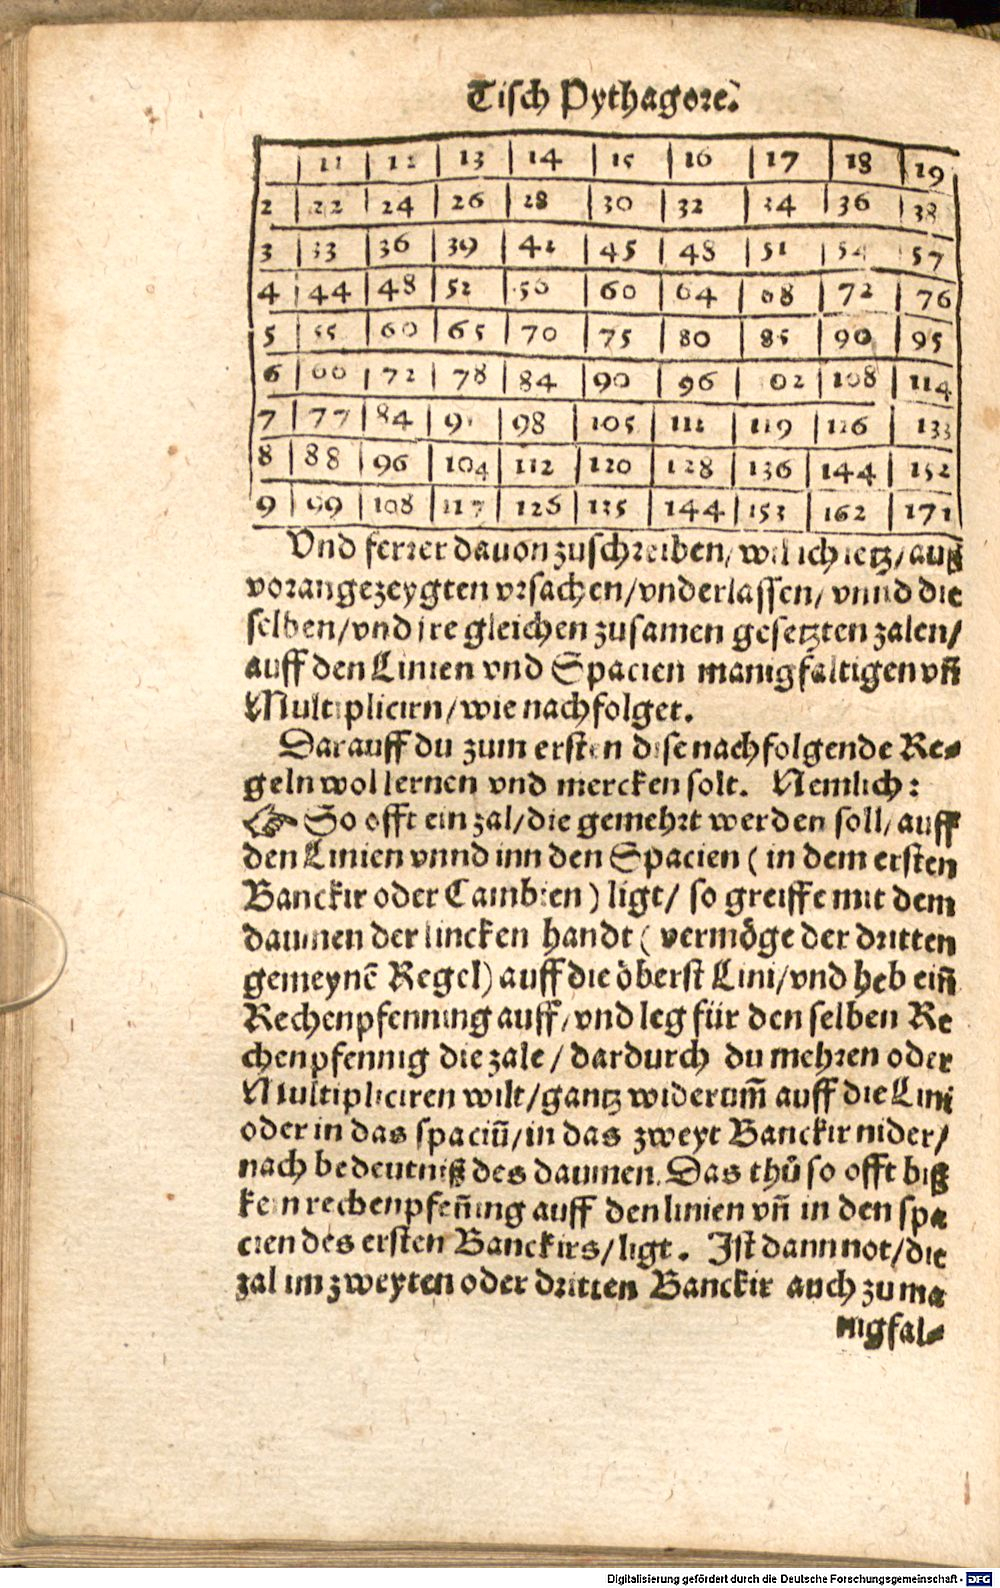 Tisch Pythagore.
11 12 13 14 15 16 17 18 19
2 22 24 26 28 30 32 34 36 38
3 33 36 39 42 45 48 51 54 57
4 44 48 52 56 60 64 68 72 76
5 55 60 65 70 75 80 85 90 95
6 66 72 78 84 90 96 102 108 114
7 77 84 91 98 105 112 119 126 133
8 88 96 104 112 120 128 136 144 152
9 99 108 117 126 135 144 153 162 171
Vnd ferrer dauon zuschreiben/ wil ich ietz/ auß
vorangezeygten vrsachen/vnderlassen/ vnnd die
selben/vnd jre gleichen zusamen gesetzten zalen/
auff den Linien vnd Spacien manigfaltigen vñ
Multiplicirn/wie nachfolget.
Darauff du zum ersten dise nachfolgende Re-
geln wol lernen vnd mercken solt. Nemlich:
☞ So offt ein zal/die gemehrt werden soll/ auff
den Linien vnnd inn den Spacien ( in dem ersten
Banckir oder Cambien ) ligt/ so greiffe mit dem
daumen der lincken handt ( vermöge der dritten
gemeynẽ Regel) auff die öberst Lini/vnd heb eiñ
Rechenpfenning auff/vnd leg für den selben Re
chenpfennig die zale/ dardurch du mehren oder
Multipliciren wilt/gantz widerum̃ auff die Lini
oder in das spaciũ/in das zweyt Banckir nider/
nach bedeutniß des daumen. Das thů so offt biß
kein rechenpfeñing auff den linien vñ in den spa
cien des ersten Banckirs/ligt. Ist dann not/die
zal im zweyten oder dritten Banckir auch zu ma
nigfal-
Digitalisierung gefördert durch die Deutsche Forschungsgemeinschaft - DFG